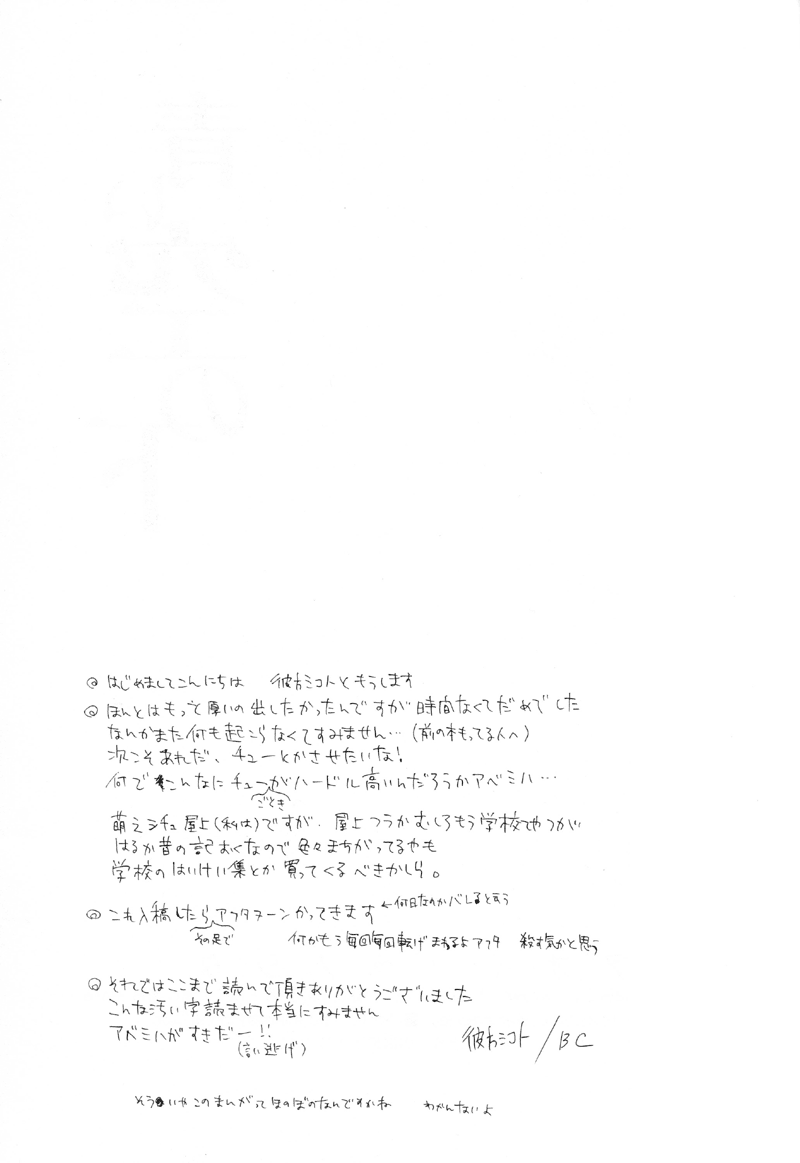 はじめましてこんにちは 彼方ミコトともうします
ほんとはもっと厚いの出したかったんですが時間なくてだめでした
なんかまた何も起こらなくてすみません…(前の本もってる人へ)
次こそあれだ、チューとかさせたいな!
何でこんなにチューがハードル高いんだろうかアベミハ…
ごとき
萌えシチュ屋上(私は)ですが、屋上つうかむしろもう学校てやつが
はるか昔の記おくなので色々まちがってるやも
学校のはいけい集とか買ってくるべきかしら。
これ入稿したらアフタヌーンかってきます ←何日なのかバレると言う
その足で 何かもう毎回毎回転げまわるよアフタ 殺す気かと思う
それではここまで読んで頂きありがとうございました
こんな汚い字読ませて本当にすみません
アベミハがすきだー!!
(言い逃げ)
彼方ミコト/BC
そういやこのまんがってほのぼのなんですかね わかんないよ